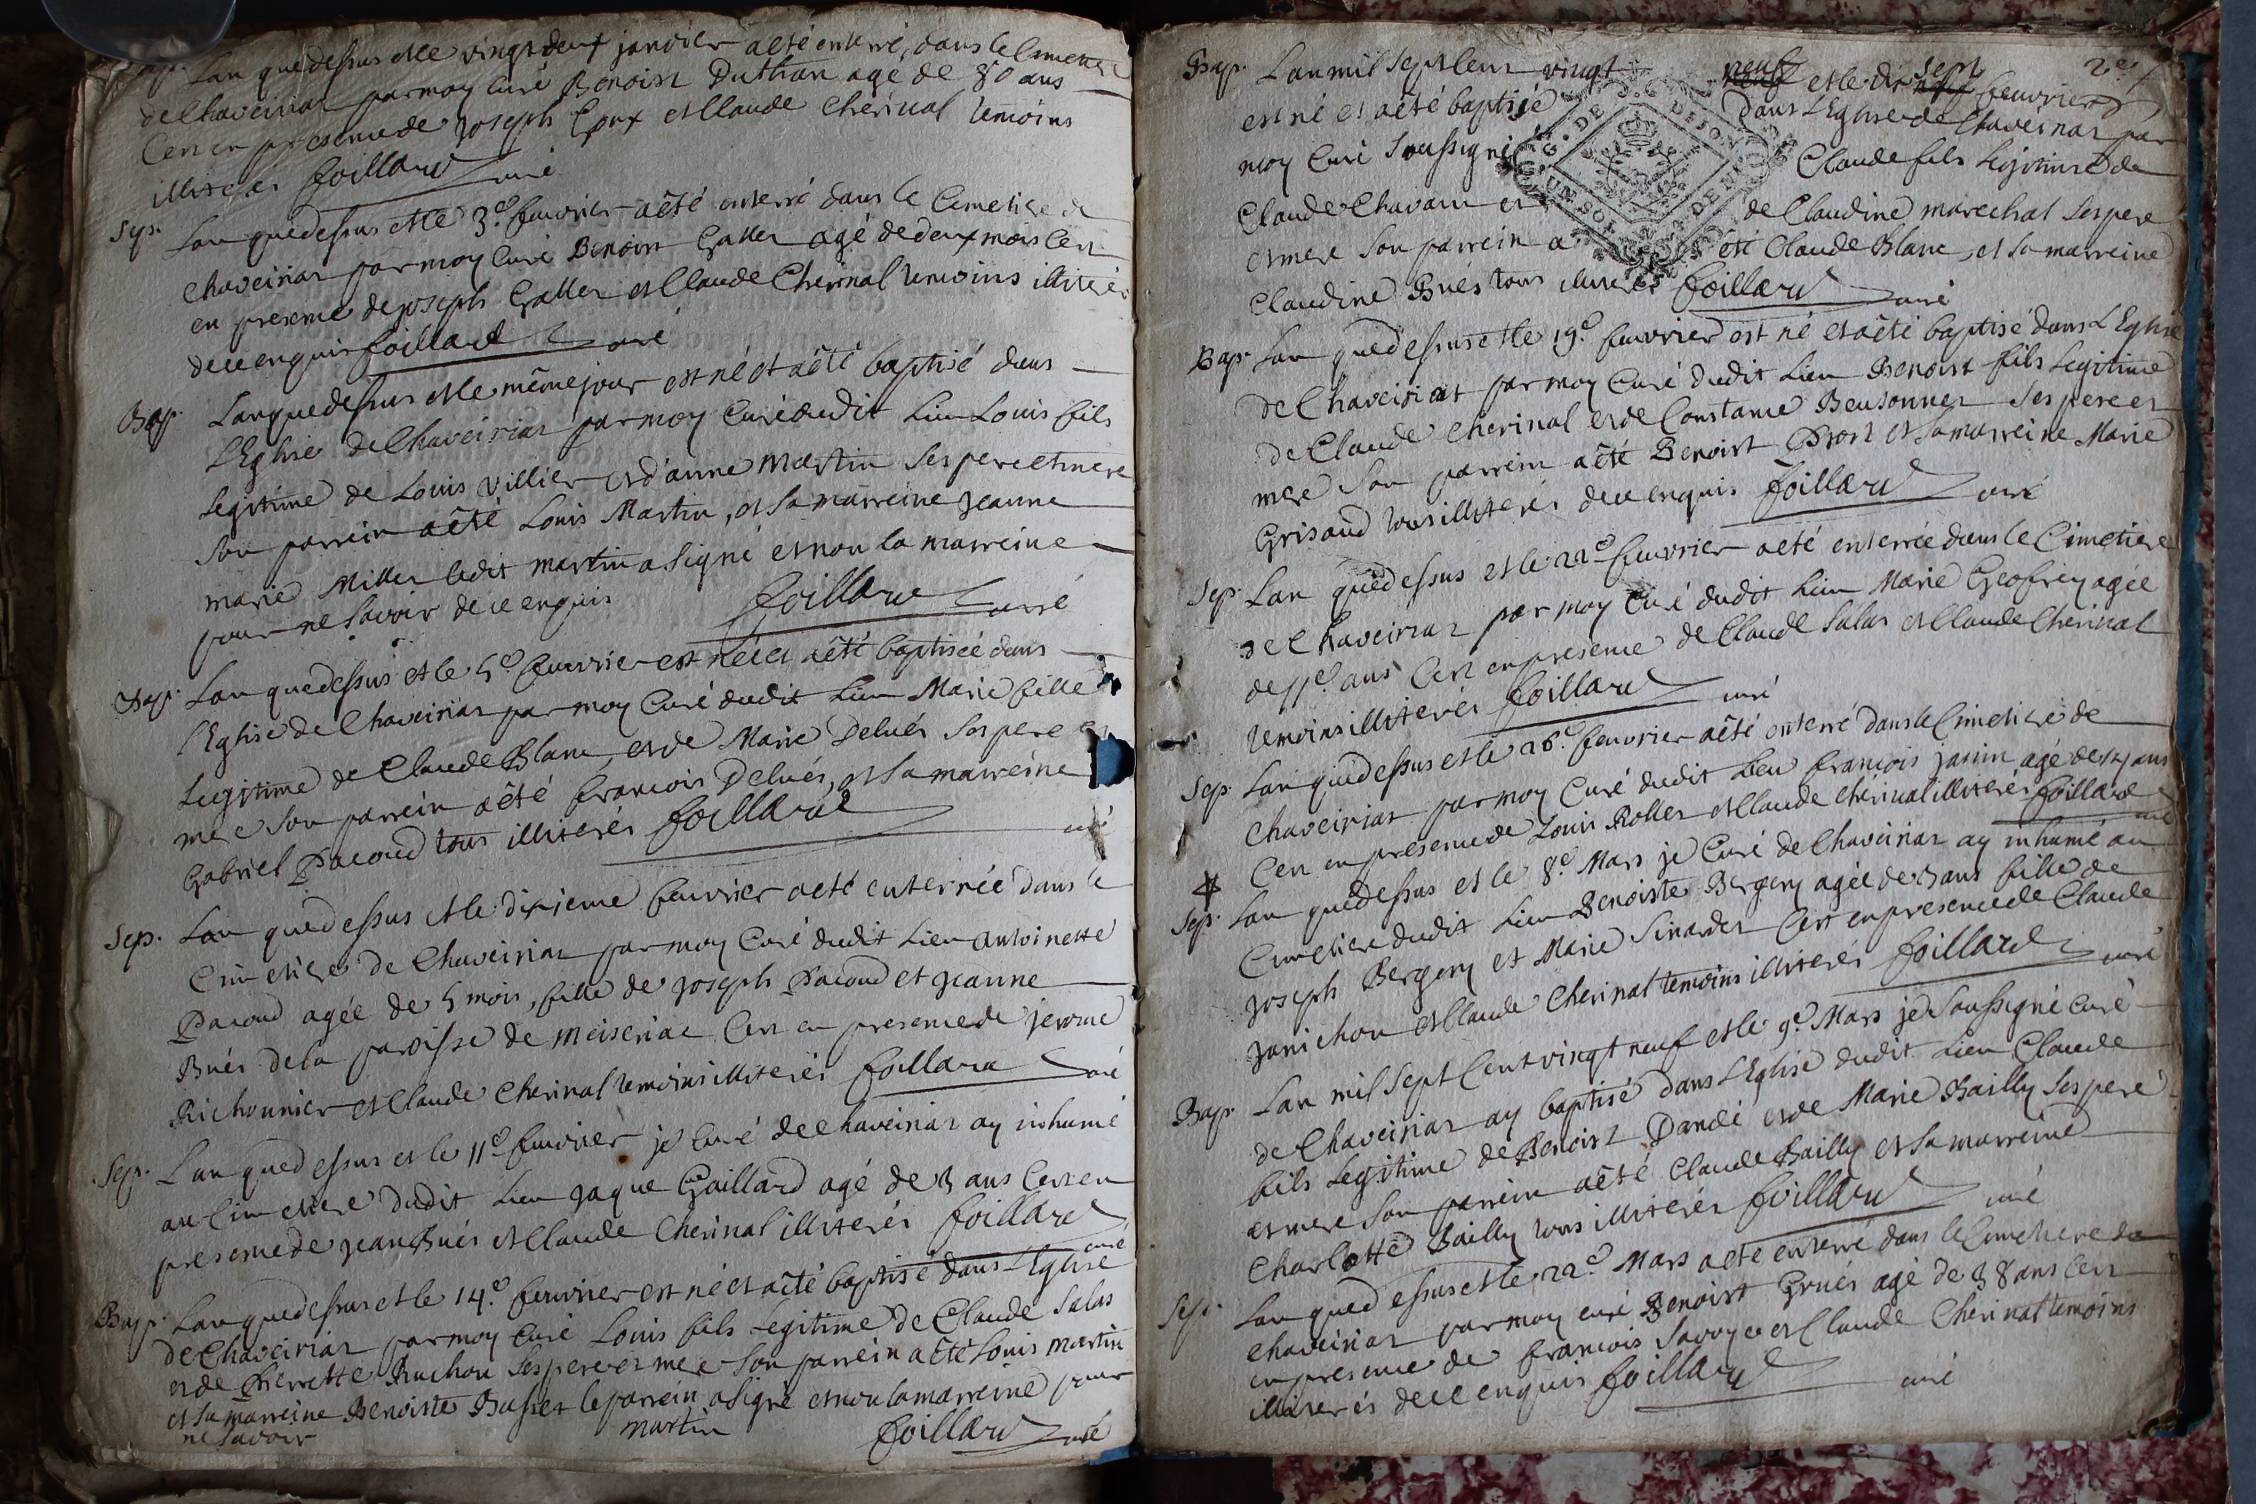 Sep. Lan que dessus et le vingt deux janvier a eté enterré, dans le Cimetiere
de Chaveiriat par moy Curé Benoist Duthran agé de 80 ans
Cert en presence de joseph Goux et Claude Cherinal temoins
illiterés foillard curé
Sep. Lan que dessus et le 3e. feuvrier a êté enterré dans le Cimetiere de
Chaveiriat par moy Curé Benoist Galler agé de deux mois Cert
en presence de joseph Galler et Claude Cherinal temoins illiterés
de ce enquis foillard curé
Bap. Lan que dessus et le même jour est né et a êté baptisé dans
L'Eglise de Chaveiriat par moy Curé dudit Lieu Louis fils
Legitime de Louis Villier et d'anne Martin ses pere et mere
son parrein a êté Louis Martin, et sa marreine jeanne
marie Miller ledit martin a signé et non la marreine
pour ne savoir de ce enquis foillard curé
Bap. Lan que dessus et le 5e feuvrier est née et a êté baptisée dans
l'Eglise de Chaveiriat par moy Curé dudit Lieu Marie fille
Legitime de Claude Blanc, et de Marie Delués ses pere et
mere son parrein a êté francois Delués, et sa marreine
Gabriel Pacoud tous illiterés foillard curé
Sep. Lan que dessus et le dixieme feuvrier a eté enterrée dans le
Cimetiere de Chaveiriat par moy Curé dudit Lieu antoinette
Pacoud agée de 5 mois, fille de joseph Pacoud et jeanne
Bués de la paroisse de meiseriac Cert en presence de jerome
Richonnier et Claude Cherinal temoins illiterés foillard curé
Sep. Lan que dessus et le 11e feuvrier je Curé de Chaveiriat ay inhumé
au Cimetiere dudit Lieu jaque Gaillard agé de 3 ans Cert en
presence de jean Bués et Claude Cherinal illiterés foillard curé
Bap. Lan que dessus et le 14e. feuvrier est né et a êté baptisé dans l'Eglise
de Chaveiriat par moy Curé Louis fils Legitime de Claude Salas
et de Pierrette Ruchon ses pere et mere son parrein a êté Louis martin
et sa marreine Benoiste Busset le parrein a signé et non la marreine pour
ne savoir martin foillard curé
2e
Bap. Lan mil sept Cent vingt neuf et le dix sept feuvrier
est né et a eté baptisé dans l'Eglise de Chaveiriat par
moy Curé soussigné Claude fils Legitime de
Claude Chavann et de Claudine marechal ses pere
et mere son parrein a eté Claude Blanc, et sa marreine
Claudine Bués tous illiterés foillard curé
Bap. Lan que dessus et le 19e. feuvrier est né et a êté baptisé dans L'Eglise
de Chaveiriat par moy Curé dudit Lieu Benoist fils Legitime
de Claude Cherinal et de Constance Beusonnet ses pere et
mere son parrein a êté Benoist Prost et sa marreine Marie
Grisaud tous illiterés de ce enquis foillard curé
Sep. Lan que dessus et le 22e feuvrier a eté enterrée dans le Cimetiere
de Chaveiriat par moy Curé dudit Lieu Marie Geofrey agée
de ans Cert en presence de Claude Salas et Claude Cherinal
temoins illiterés foillard curé
Sep. Lan que dessus et le 26e. feuvrier a êté enterré dans le Cimetiere de
Chaveiriat par moy Curé dudit Lieu francois janin agé de ans
Cert en presence de Louis Roller et Claude Cherinal illiterés foillard curé
Sep. Lan que dessus et le 8e Mars je Curé de Chaveiriat ay inhumé au
Cimetiere dudit Lieu Benoiste Bergery agée de 3 ans fille de
joseph Bergery et Marie Sinardet Cert en presence de Claude
janichon et Claude Cherinal temoins illiterés foillard curé
Bap. Lan mil sept Cent vingt neuf et le 9e. Mars je soussigné Curé
de Chaveiriat ay baptisé dans l'Eglise dudit Lieu Claude
fils Legitime de Benoist Dandé et de Marie Bailly ses pere
et mere son parrein a êté Claude Bailly et sa marreine
Charlotte Bailly tous illiterés foillard curé
Sep. Lan que dessus et le 22e Mars a eté enterré dans le Cimetiere de
Chaveiriat par moy curé Benoist Grués agé de 38 ans Cert
en presence de francois Savoye et Claude Cherinal temoins
illiterés de ce enquis foillard curé